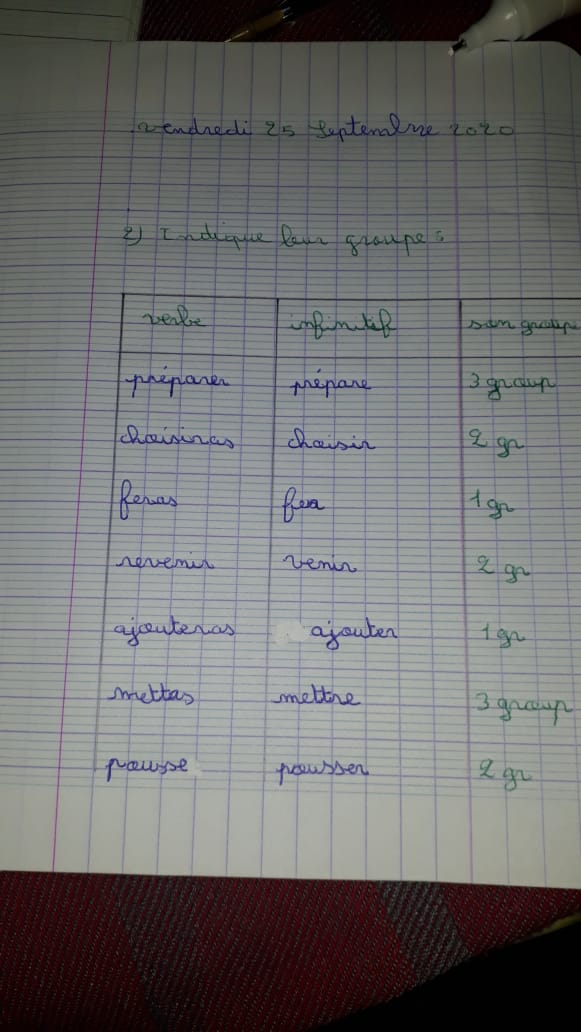 vendredi 25 Septembre 2020
2) Indique leur groupe :
verbe infinitif son groupe
préparer prépare 3 group
choisiras choisir 2 gr
feras fea 1 gr
revenir venir 2 gr
ajouteras ajouter 1 gr
mettas mettre 3 group
pousse pousser 2 gr